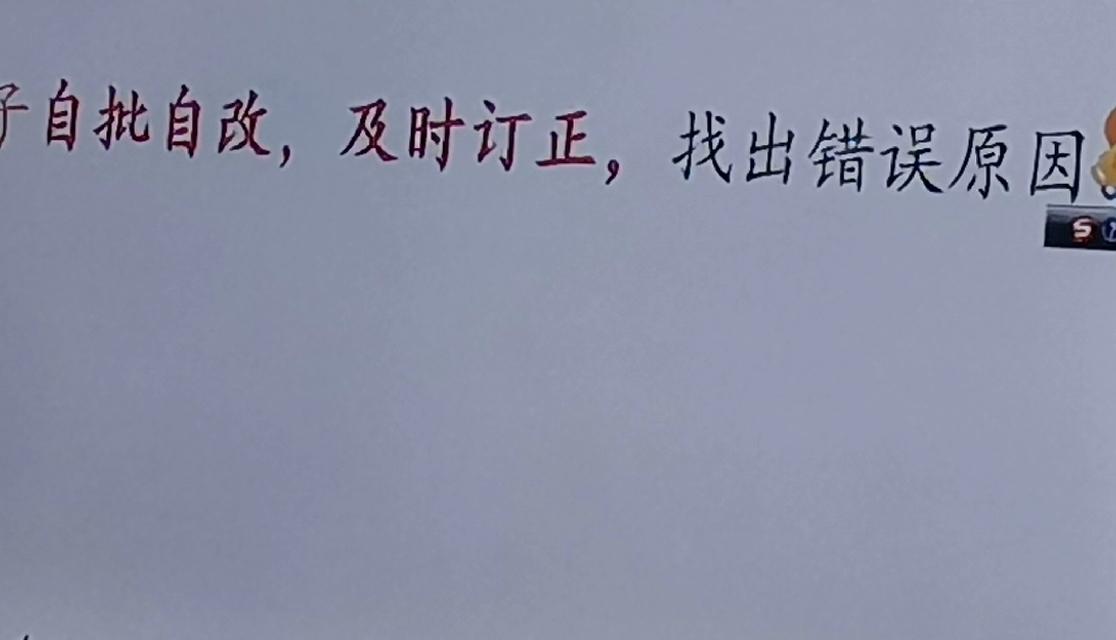 自批自改，及时订正，找出错误原因